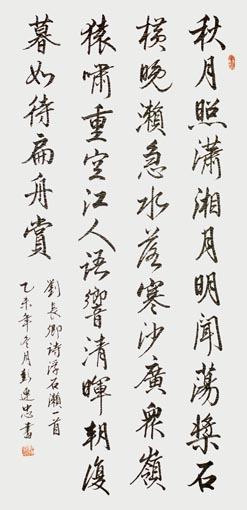 秋月照瀟湘月明聞蕩槳石
橫晚瀨急水落寒沙廣眾嶺
猿嘯重空江人語響清暉朝復
暮如待扁舟賞
劉長卿詩浮石瀨一首
乙未年冬月彭逸忠書